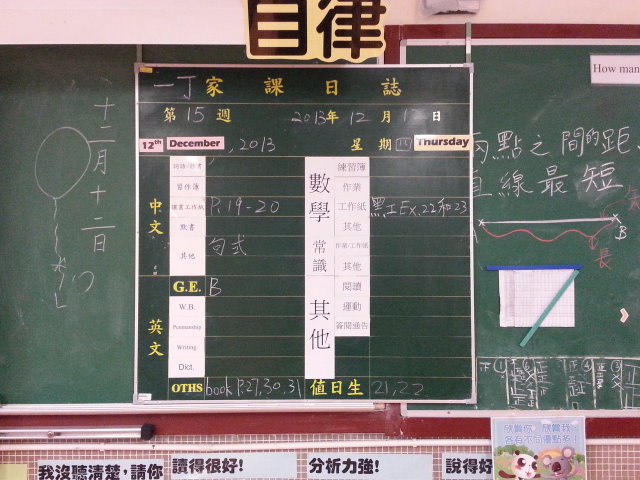 自律
一丁家課日誌
第15週 2013年12月12日
12th December, 2013 星期四 Thursday
中文
習作簿
P.19-20
默書
其他
句式
G.E. B
英文
W.B.
Penmanship
Writing
Dict.
OTHS book P.27,30,31
數學
練習簿
作業
工作紙 黑工Ex.22和23
其他
常識
作業/工作紙
其他
其他
閱讀
運動
簽閱通告
值日生 21,22
十二月十二日
How man
兩點之間的距
直線最短
A
B
長
我沒聽清楚,請你
讀得很好!
分析力強!
說得好
欣賞你,欣賞我,
各有不同優點多!